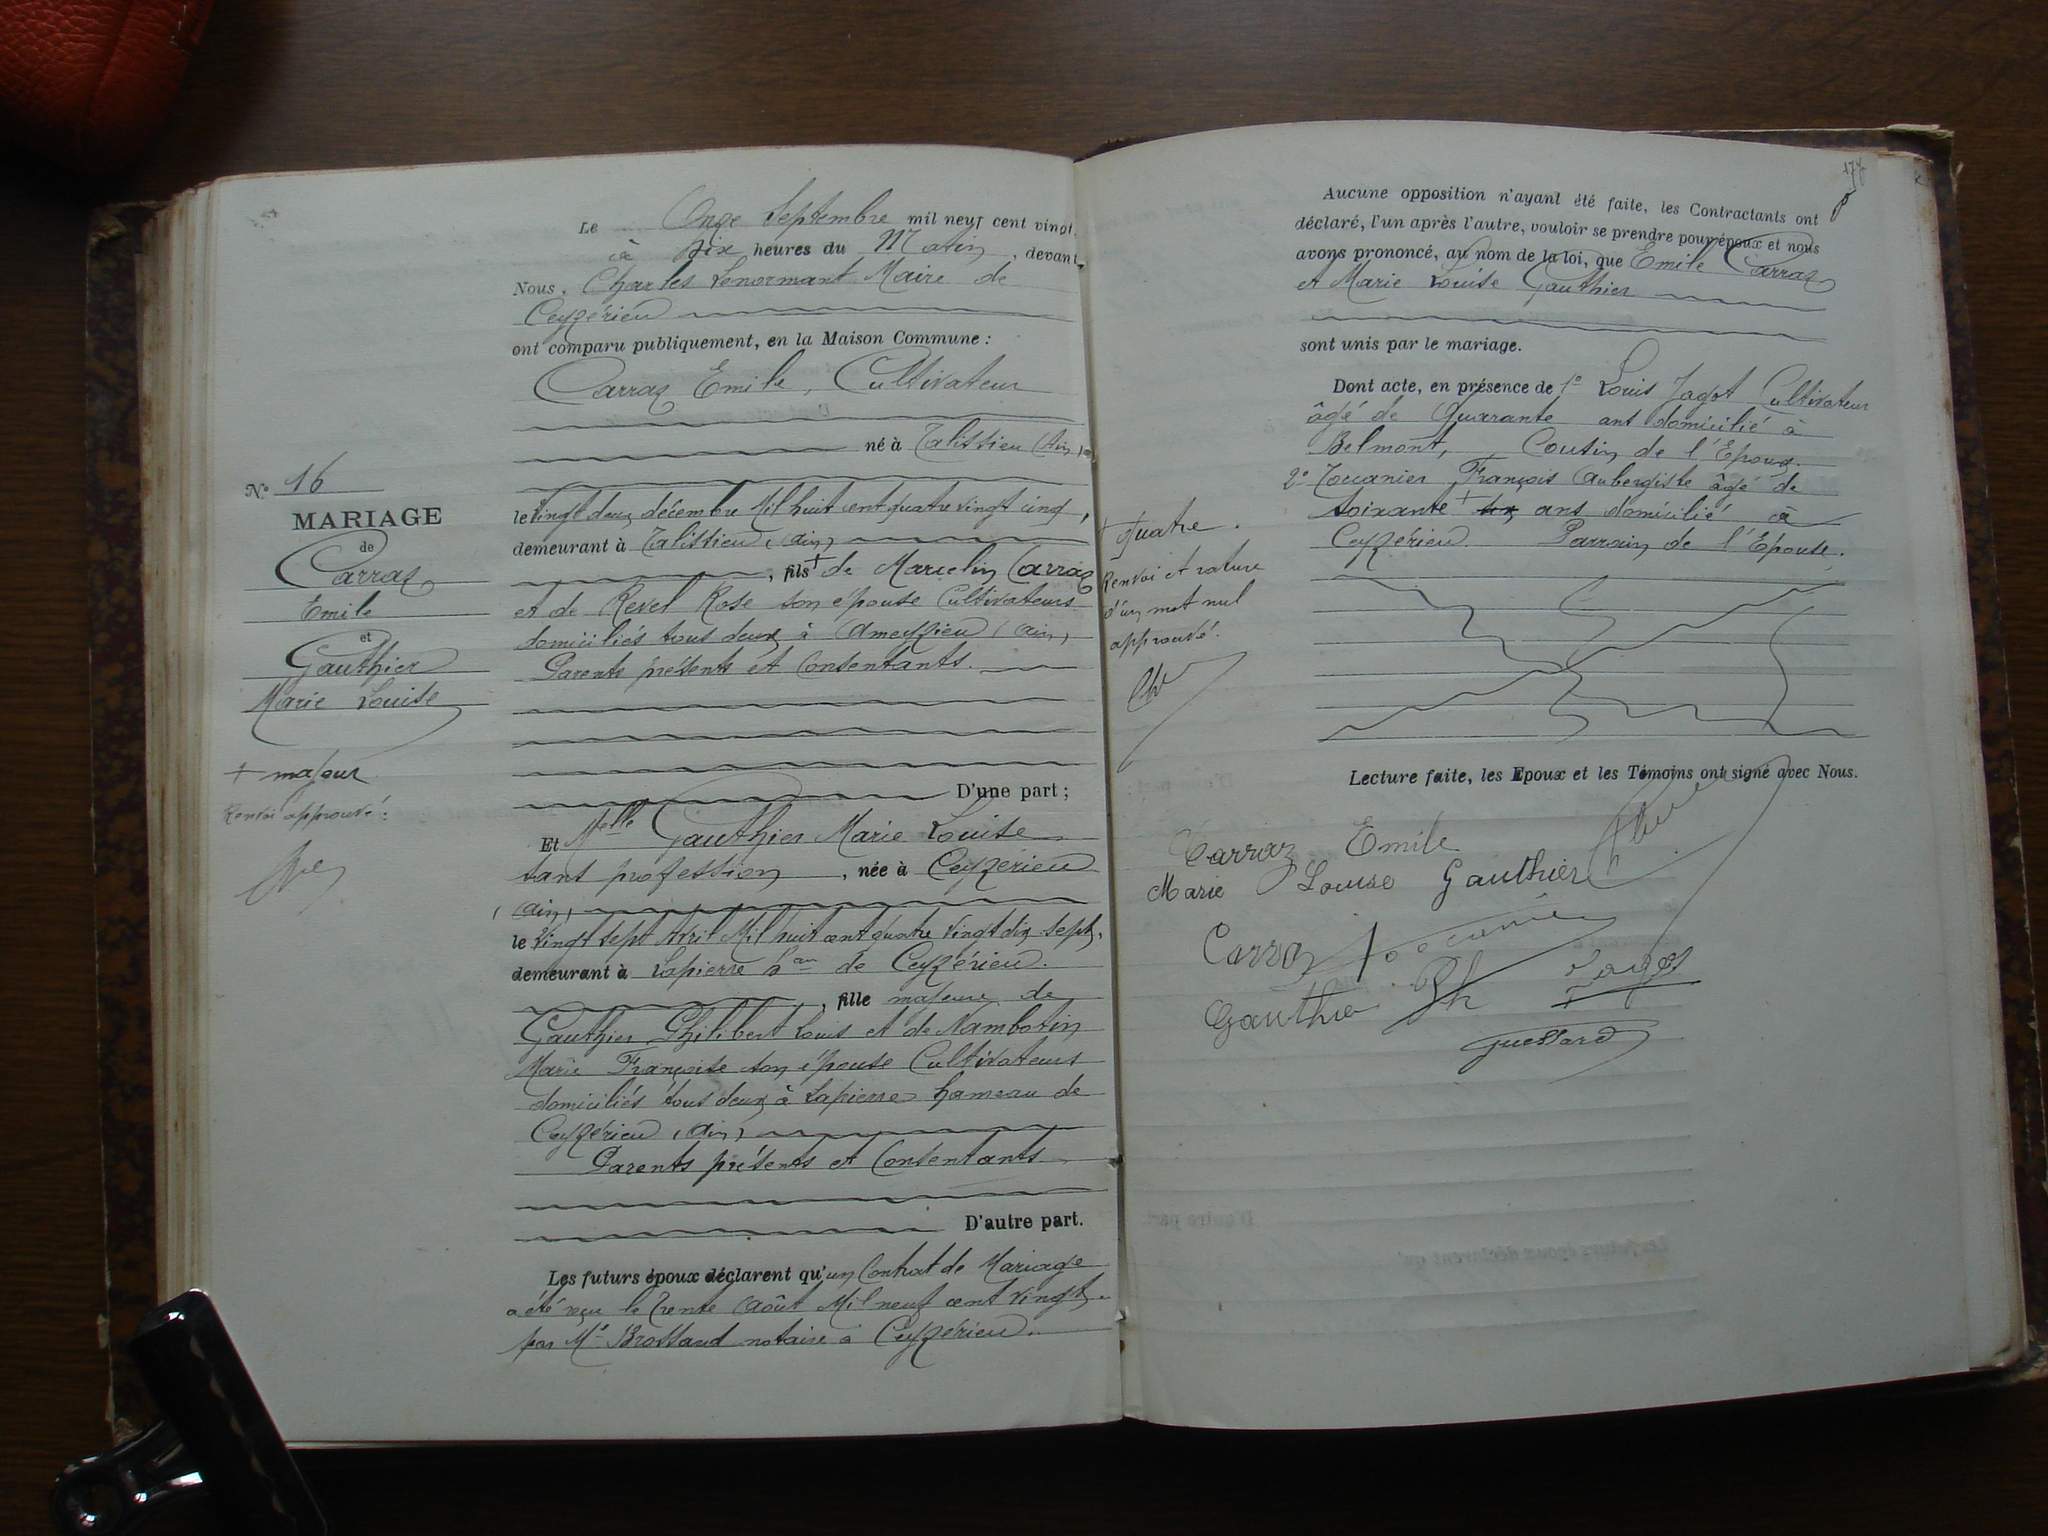 Nº 16
MARIAGE
de
Carraz
Emile
et
Gauthier
Marie Louise
+ majeur
Renvoi approuvé :
Le Onze Septembre mil neuf cent vingt,
à dix heures du Matin, devant
Nous, Charles Lenormant Maire de
Ceyzérieu
ont comparu publiquement, en la Maison Commune :
Carraz Emile, Cultivateur
né à Talissieu (Ain)
le vingt deux décembre Mil huit cent quatre vingt cinq,
demeurant à Talissieu (Ain)
, fils + de Marcelin Carraz
et de Revel Rose son épouse Cultivateurs
domiciliés tous deux à Ameyzieu (Ain)
Parents présents et Consentants.
D'une part ;
Et Melle Gauthier Marie Louise
sans profession, née à Ceyzérieu
(Ain)
le Vingt sept Avril Mil huit cent quatre vingt dix sept,
demeurant à Lapierre hau de Ceyzérieu.
, fille majeure de
Gauthier Philibert Louis et de Nambotin
Marie Françoise son épouse Cultivateurs
domiciliés tous deux à Lapierre hameau de
Ceyzérieu (Ain)
Parents présents et Consentants.
D'autre part.
Les futurs époux déclarent qu'un Contrat de Mariage
a été reçu le Trente Août Mil neuf cent vingt
par Me Brossand notaire à Ceyzérieu.
177
Aucune opposition n'ayant été faite, les Contractants ont
déclaré, l'un après l'autre, vouloir se prendre pour époux et nous
avons prononcé, au nom de la loi, que Emile Carraz
et Marie Louise Gauthier
sont unis par le mariage.
Dont acte, en présence de 1º Louis Jagot Cultivateur
âgé de Quarante ans domicilié à
Belmont, Cousin de l'Epoux.
2º Tocanier François Aubergiste âgé de
soixante + six ans domicilié à
Ceyzérieu Parrain de l'Epouse.
+ quatre.
Renvoi et rature
d'un mot nul
approuvé.
Lecture faite, les Epoux et les Témoins ont signé avec Nous.
Carraz Emile
Marie Louise Gauthier
Carraz Tocanier
Gauthier Ph Jagot
Guessard